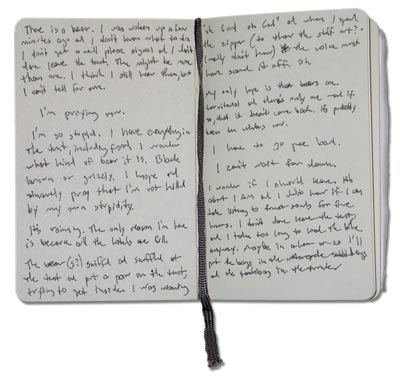 There is a bear. I was woken up a few
minutes ago and I don't know what to do.
I don't get a cell phone signal and I don't
dare leave the tent. There might be more
than one. I think I still hear them, but
I can't tell for sure.
I'm praying now.
I'm so stupid. I have everything in
the tent, including food. I wonder
what kind of bear it is. Black
brown or grizzly. I hope and
sincerely pray that I'm not killed
by my own stupidity.
It's raining. The only reason I'm here
is because all the hotels are full.
The bear(s?) sniffed and snuffled at
the tent and put a paw on the tent,
trying to get inside. I was moving
oh God oh God and when I opened
the zipper (to throw the stuff out?
I really don't know) the noise must
have scared it off. Oh
My only hope is that bears are
and there's only one and if
so, that it doesn't come back. It's probably
been minutes now.
I have to go pee bad.
I can't wait for dawn.
I wonder if I should leave. It's
about 1 AM and I don't know if I can
take listening to forest sounds for five
hours. I don't dare leave the tent
and I take too long to load the bike
anyway. Maybe in an hour or so I'll
put the bags in the
and the in the